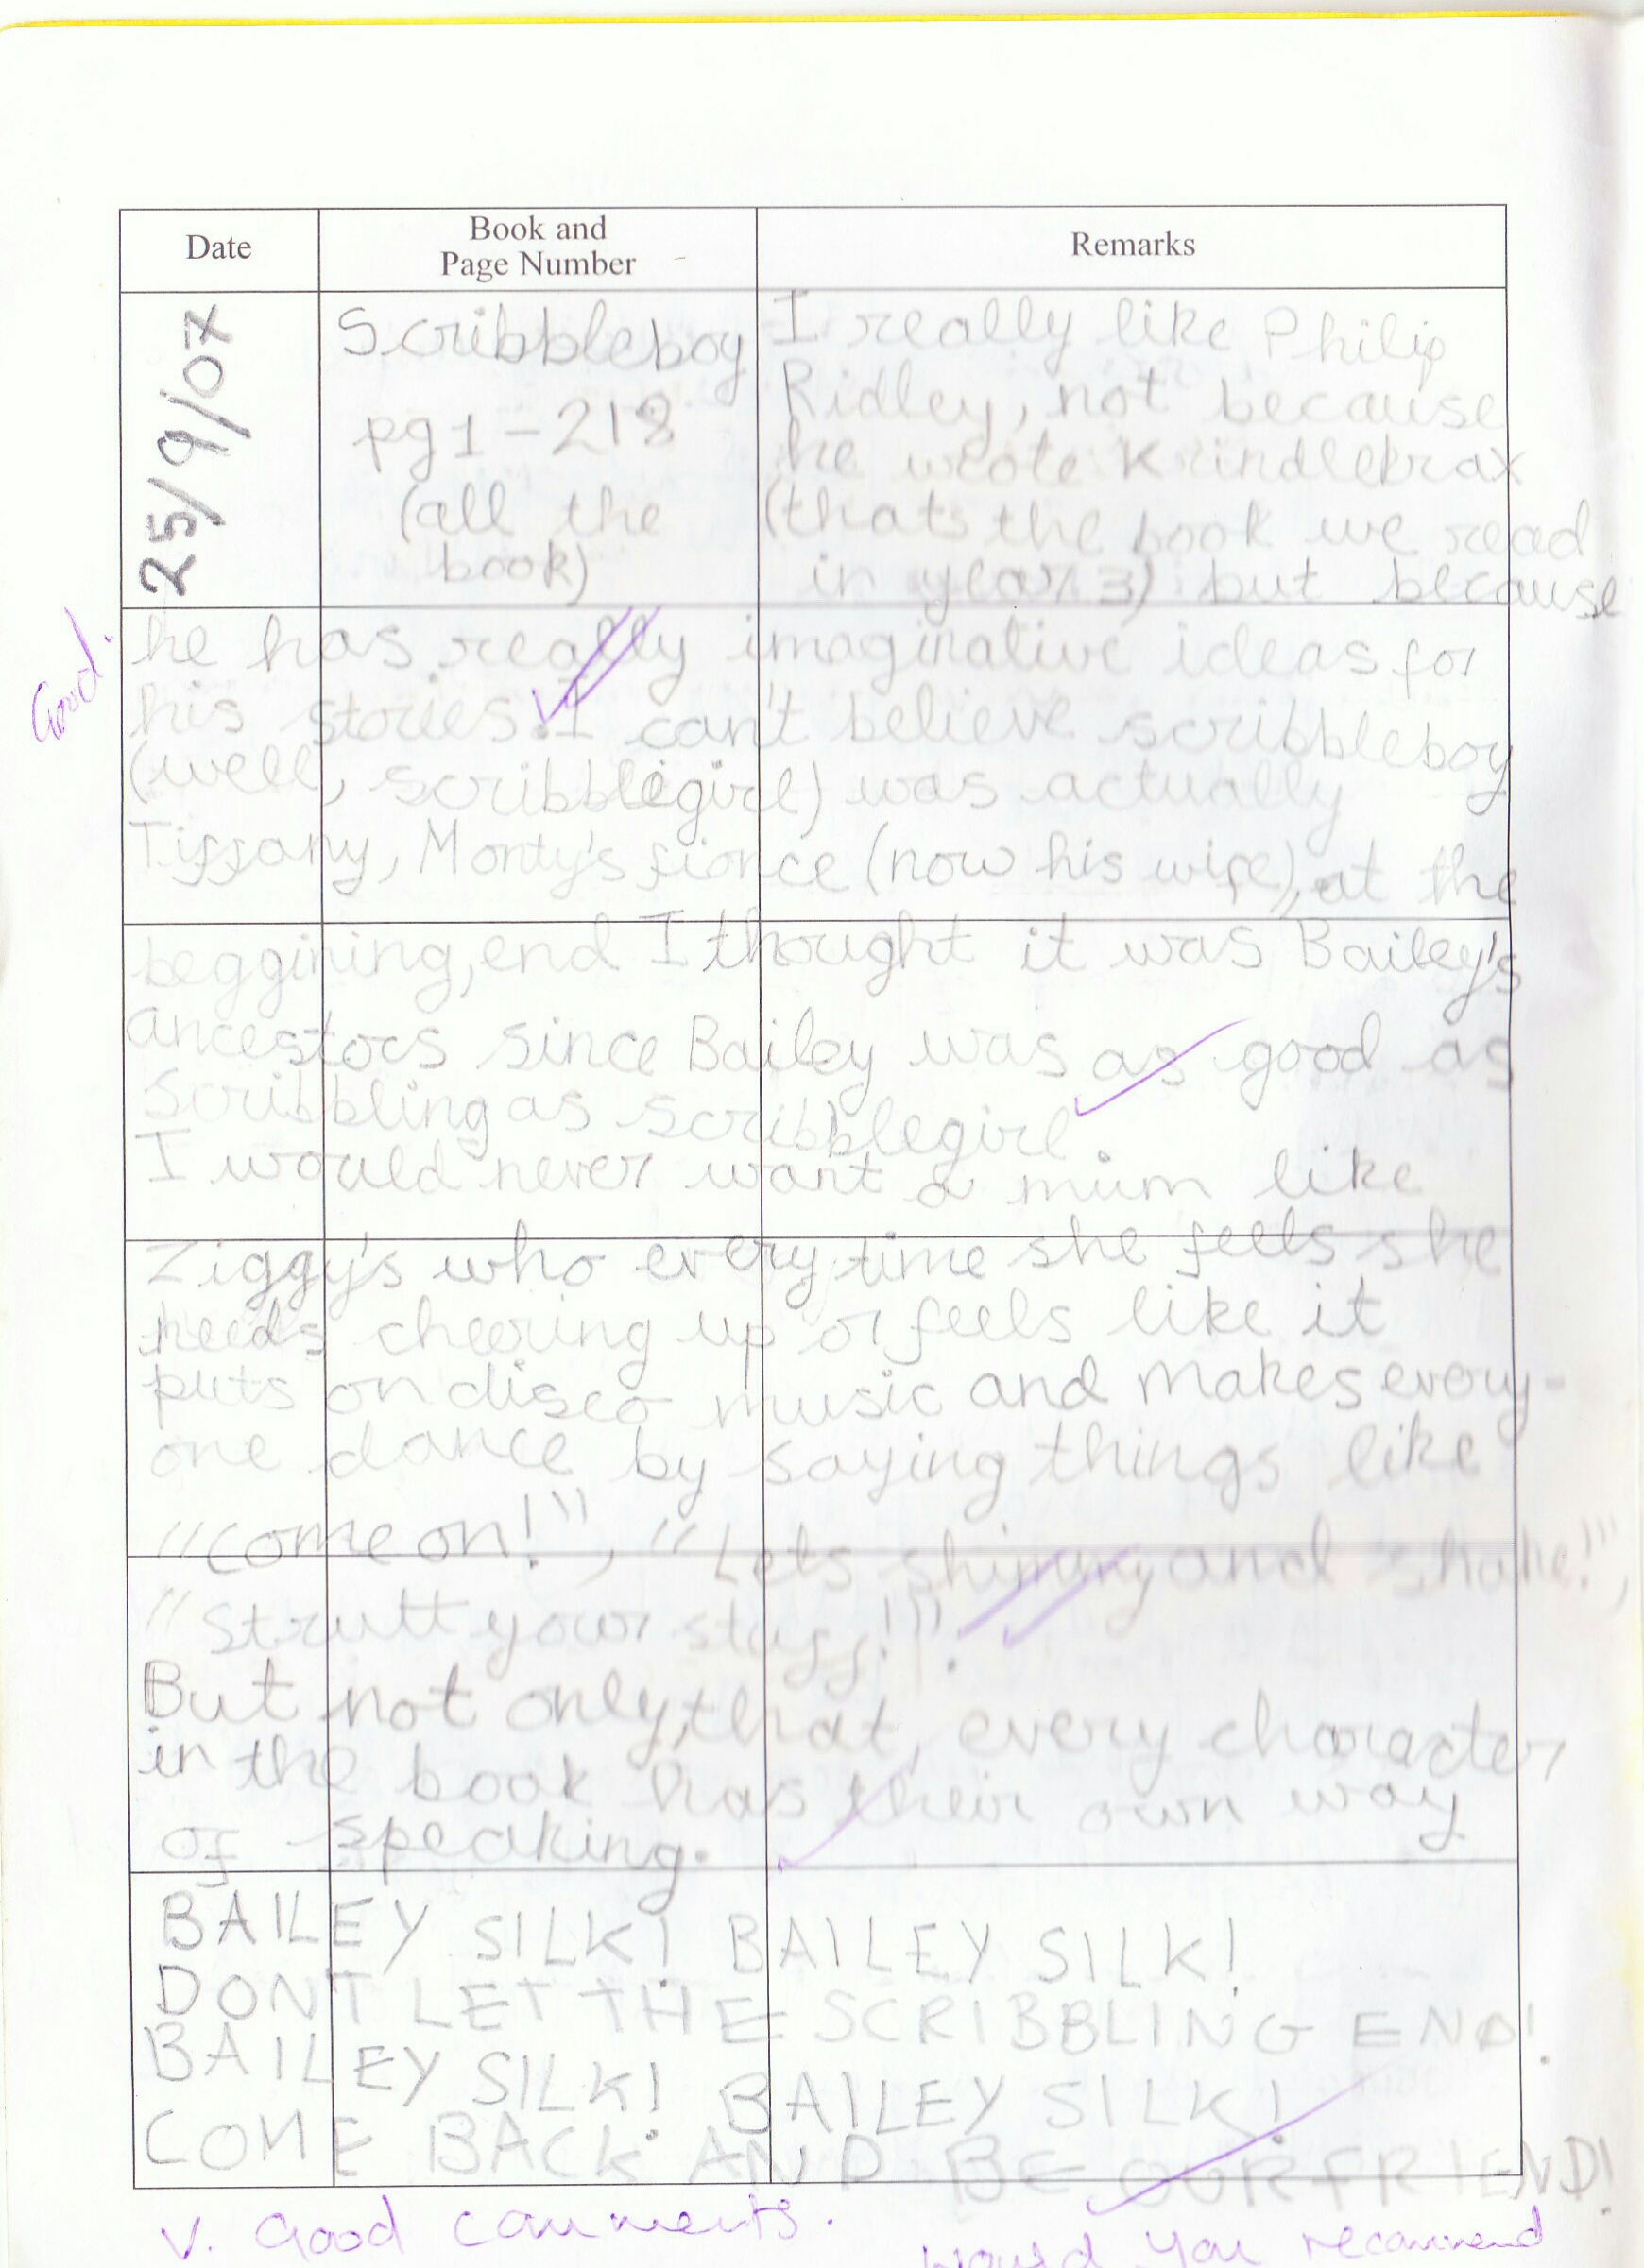 Date
Book and
Page Number
Remarks
25/9/07
Scribbleboy
pg 1 - 218
(all the
book)
I really like Philip
Ridley, not because
he wrote Krindlekrax
(thats the book we read
in year 3) but because
he has really imaginative ideas for
his stories. I can't believe scribbleboy
(well, scribblegirl) was actually
Tiffany, Monty's fionce (now his wife), at the
beggining, end I thought it was Bailey's
ancestors since Bailey was as good as
scribbling as scribblegirl.
I would never want a mum like
Ziggy's who every time she feels she
needs cheering up or feels like it
puts on disco music and makes every-
one dance by saying things like
"come on!", "Lets shimmy and shake!",
"Strutt your stuff!".
But not only that, every character
in the book has their own way
of speaking.
BAILEY SILK! BAILEY SILK!
DONT LET THE SCRIBBLING END!
BAILEY SILK! BAILEY SILK!
COME BACK AND BE OUR FRIEND!
Good.
V. Good comments.
Would you recommend